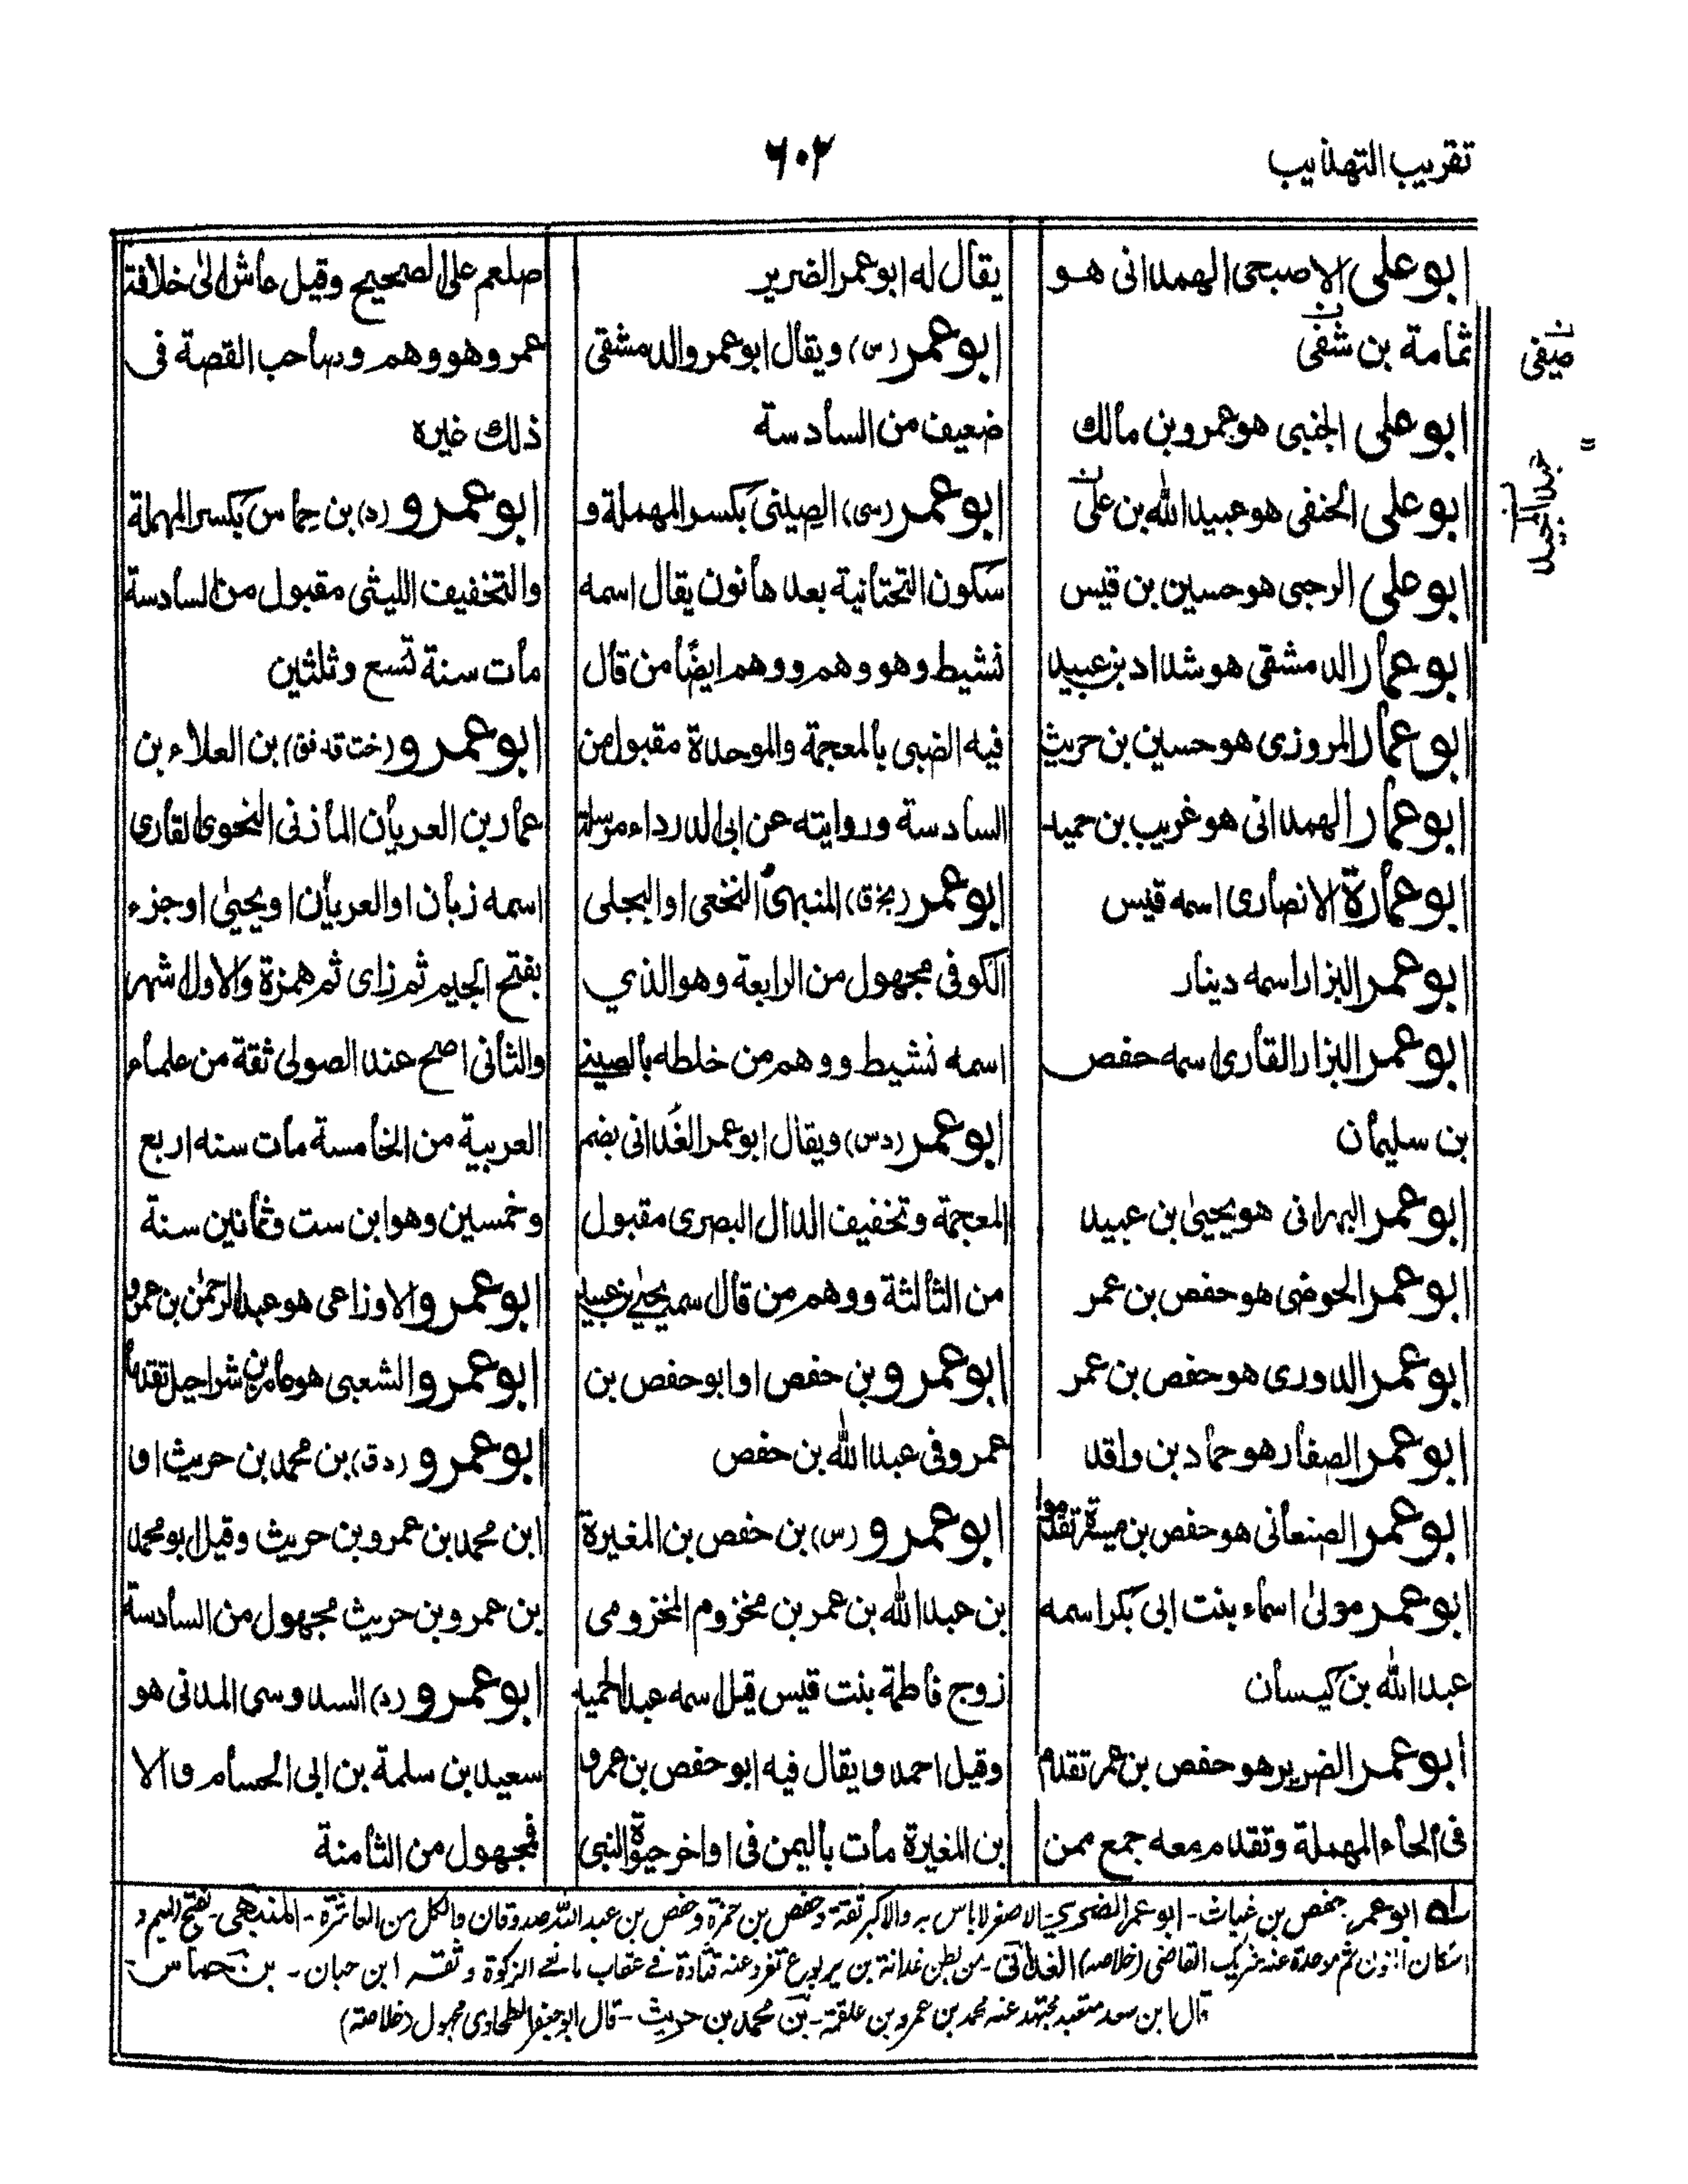 تقريب التهذيب
٦٠٢
ابو على الاصبحى الهمدانى هو
ثمامة بن شفى
ابو على الجنبى هو عمرو بن مالك
ابو على الحنفى هو عبيد الله بن على
ابو على الرحبى هو حسين بن قيس
ابو عمار الدمشقى هو شداد بن عبيد
ابو عمار المروزى هو حسين بن حريث
ابو عمار الهمدانى هو غريب بن حميد
ابو عمارة الانصارى اسمه قيس
ابو عمر البزار اسمه دينار
ابو عمر البزار القارى اسمه حفص
بن سليمان
ابو عمر البهرانى هو يحيىٰ بن عبيد
ابو عمر الحوضى هو حفص بن عمر
ابو عمر الدورى هو حفص بن عمر
ابو عمر الصفار هو حماد بن واقد
ابو عمر الصنعانى هو حفص بن ميسرة تقدموا
ابو عمر مولىٰ اسماء بنت ابى بكر اسمه
عبد الله بن كيسان
ابو عمر الضرير هو حفص بن عمر تقدم
فى الحاء المهملة وتقدم معه جمع ممن
يقال له ابو عمر الضرير
ابو عمر (س) ويقال ابو عمرو الدمشقى
ضعيف من السادسة
ابو عمر (سى) الصينى بكسر المهملة و
سكون التحتانية بعدها نون يقال اسمه
نشيط وهو وهم ووهم ايضًا من قال
فيه الضبى بالمعجمة والموحدة مقبول من
السادسة وروايته عن ابى الدرداء مرسلة
ابو عمر (بخ ق) المنبهى النخعى او البجلى
الكوفى مجهول من الرابعة وهو الذي
اسمه نشيط ووهم من خلطه بالصينى
ابو عمر (دس) ويقال ابو عمر الغُدانى بضم
المعجمة وتخفيف الدال البصرى مقبول
من الثالثة ووهم من قال اسمه يحيىٰ بن عبيد
ابو عمرو بن حفص او ابو حفص بن
عمرو فى عبد الله بن حفص
ابو عمرو (س) بن حفص بن المغيرة
بن عبد الله بن عمر بن مخزوم المخزومى
زوج فاطمة بنت قيس قيل اسمه عبد الحميد
وقيل احمد ويقال فيه ابو حفص بن عمرو
بن المغيرة مات باليمن فى اواخر حيوٰة النبى
صلعم على الصحيح وقيل عاش الىٰ خلافة
عمر وهو وهم وصاحب القصة فى
ذلك غيره
ابو عمرو (د) بن حِماس بكسر المهملة
والتخفيف الليثى مقبول من السادسة
مات سنة تسع وثلثين
ابو عمرو (خت قد فق) بن العلاء بن
عمار بن العريان المازنى النحوى القارى
اسمه زبان او العريان او يحيىٰ او جزء
بفتح الجيم ثم زاى ثم همزة والاول اشهر
والثانى اصح عند الصولى ثقة من علماء
العربية من الخامسة مات سنه اربع
وخمسين وهو ابن ست وثمانين سنة
ابو عمرو الاوزاعى هو عبد الرحمٰن بن عمرو
ابو عمرو الشعبى هو عامر بن شراحيل تقدما
ابو عمرو (د ق) بن محمد بن حريث او
ابن محمد بن عمرو بن حريث وقيل ابو محمد
بن عمرو بن حريث مجهول من السادسة
ابو عمرو (د) السدوسى المدنى هو
سعيد بن سلمة بن ابى الحسام والا
فمجهول من الثامنة
صيفى
عبد المجيد
له ابو عمر حفص بن غياث - ابو عمر الضرير - الاصغر لا باس به والاكبر ثقة وحفص بن حمزة وحفص بن عبد الله صدوقان والكل من العاشرة - المنبهى - بفتح الميم و
اسكان النون ثم موحدة عنه شريك القاضى (خلاصه) الغدانى - من بطن غدانة بن يربوع تفرد عنه قتادة فى عقاب مانعى الزكوة وثقه ابن حبان - بن حماس -
قال ابن سعد متعبد مجتهد عنه محمد بن عمرو بن علقمة - بن محمد بن حريث - قال ابو جعفر الطحاوى مجهول (خلاصة)